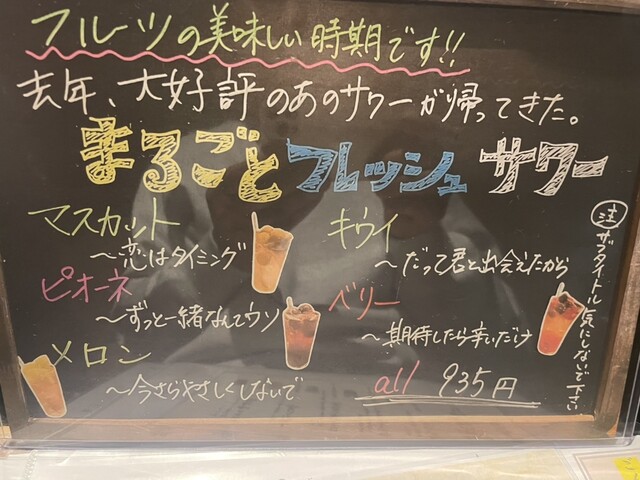 フルーツの美味しい時期です!!
去年、大好評のあのサワーが帰ってきた。
まるごとフレッシュサワー
マスカット
〜恋はタイミング
ピオーネ
〜ずっと一緒なんてウソ
メロン
〜今さらやさしくしないで
キウイ
〜だって君と出会えたから
ベリー
〜期待したら辛いだけ
all 935円
注 サブタイトル気にしないで下さい